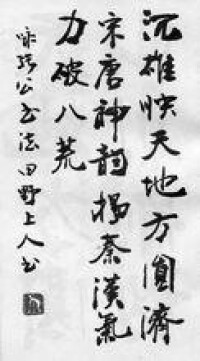 沉雄映天地方圓濟
宋唐神韻揚秦漢氣
力破八荒
咏張公书法田野上人书